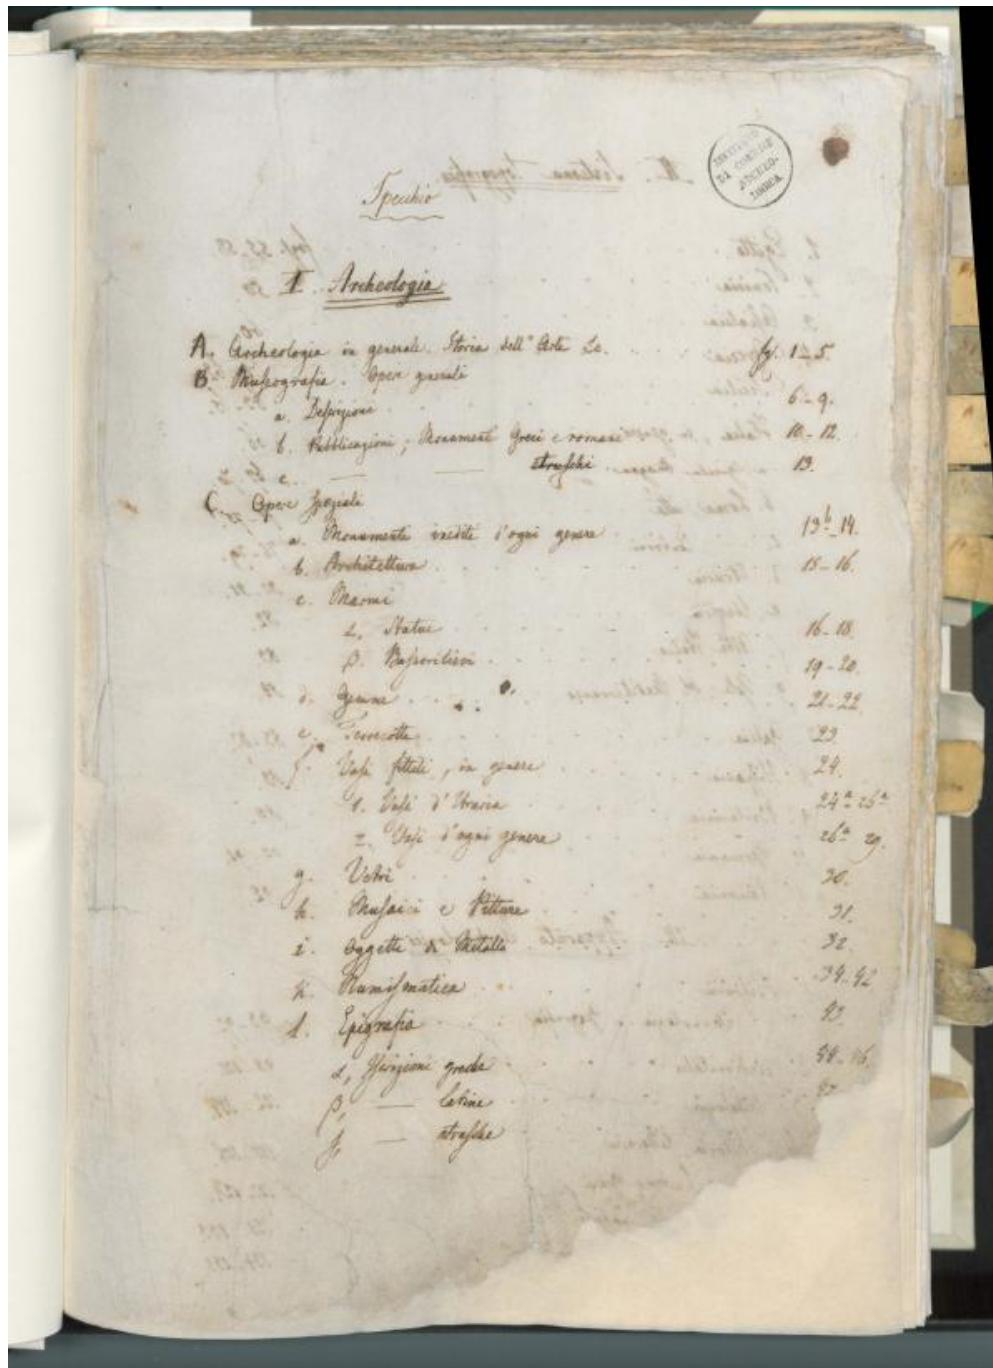 INSTITUTO
DI CORRISP.
ARCHEO-
LOGICA
Specchio
I. Archeologia
A. Archeologia in generale. Storia dell' Arte &c. fgl. 1-5.
B. Museografia. Opere generali
a. Descrizioni 6-9.
b. Pubblicazioni; Monumenti Greci e romani 10-12.
c. — — etruschi 13.
C. Opere speziali
a. Monumenti inediti d'ogni genere 13b-14.
b. Architettura 15-16.
c. Marmi
α. Statue 16-18.
β. Bassorilievi 19-20.
d. Gemme 21-22.
e. Terrecotte 23.
f. Vasi fittili, in genere 24.
1. Vasi d'Etruria 24a-26a
2. Vasi d'ogni genere 26a 29.
g. Vetri 30.
h. Musaici e Pitture 31.
i. Oggetti di Metallo 32.
k. Numismatica 34-42
l. Epigrafia 43.
α, Iscrizioni greche
β, — latine
γ, — etrusche